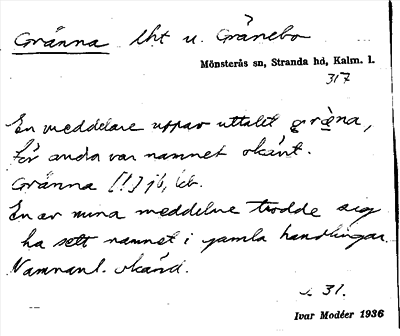 Gränna lht u. Grånebo
Mönsterås sn, Stranda hd, Kalm. l.
317
En meddelare uppav uttalet gräna,
för andra var namnet okänt.
Gränna [!] jb, kb.
En av mina meddelare trodde sig
ha sett namnet i gamla handlingar.
Namnanl. okänd.
s. 31.
Ivar Modéer 1936